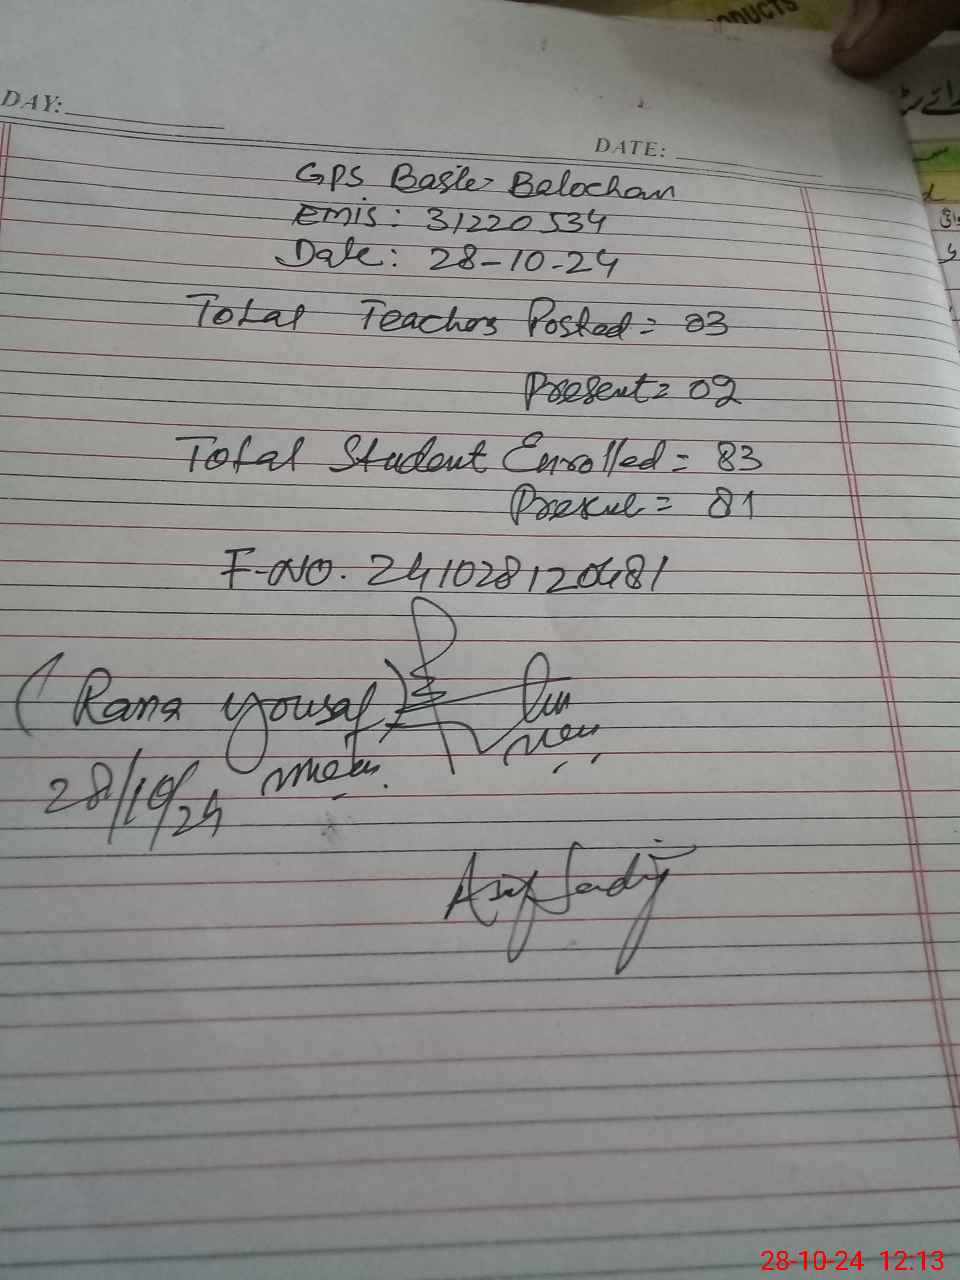 PRODUCTS
DAY:
DATE:
GPS Basti Balochan
Emis: 31220534
Date: 28-10-24
Total Teachers Posted = 03
Present = 02
Total Student Enrolled = 83
Present = 81
F-NO. 241028120481
(Rana Yousaf)
28/10/24
Asif Sadiq
28-10-24 12:13